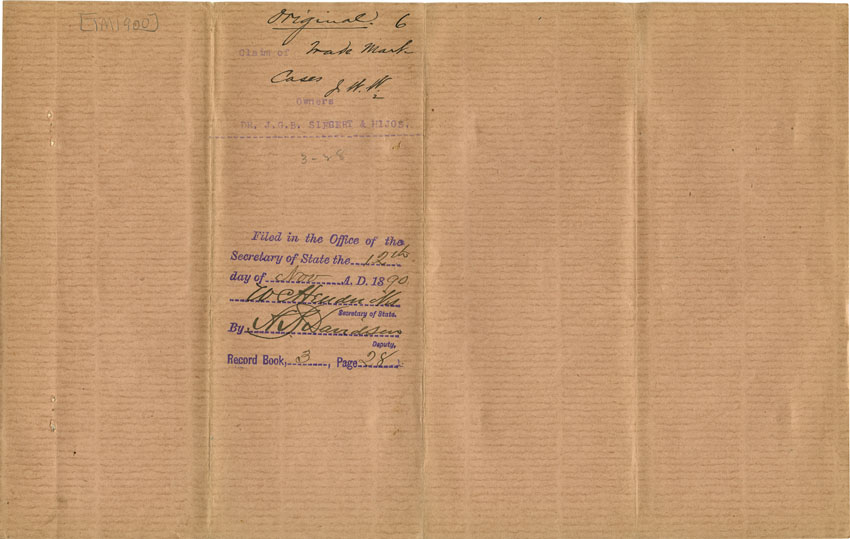 [TM1920]
Original. 6
Claim of Trade Mark
Cases J. W. W.
Owners
DR. J.G.B. SIEGERT & HIJOS.
3-28
Filed in the Office of the
Secretary of State the 12th
day of Nov A. D. 1890
W C Hendricks
Secretary of State.
By Davidson
Deputy,
Record Book, 3, Page 28